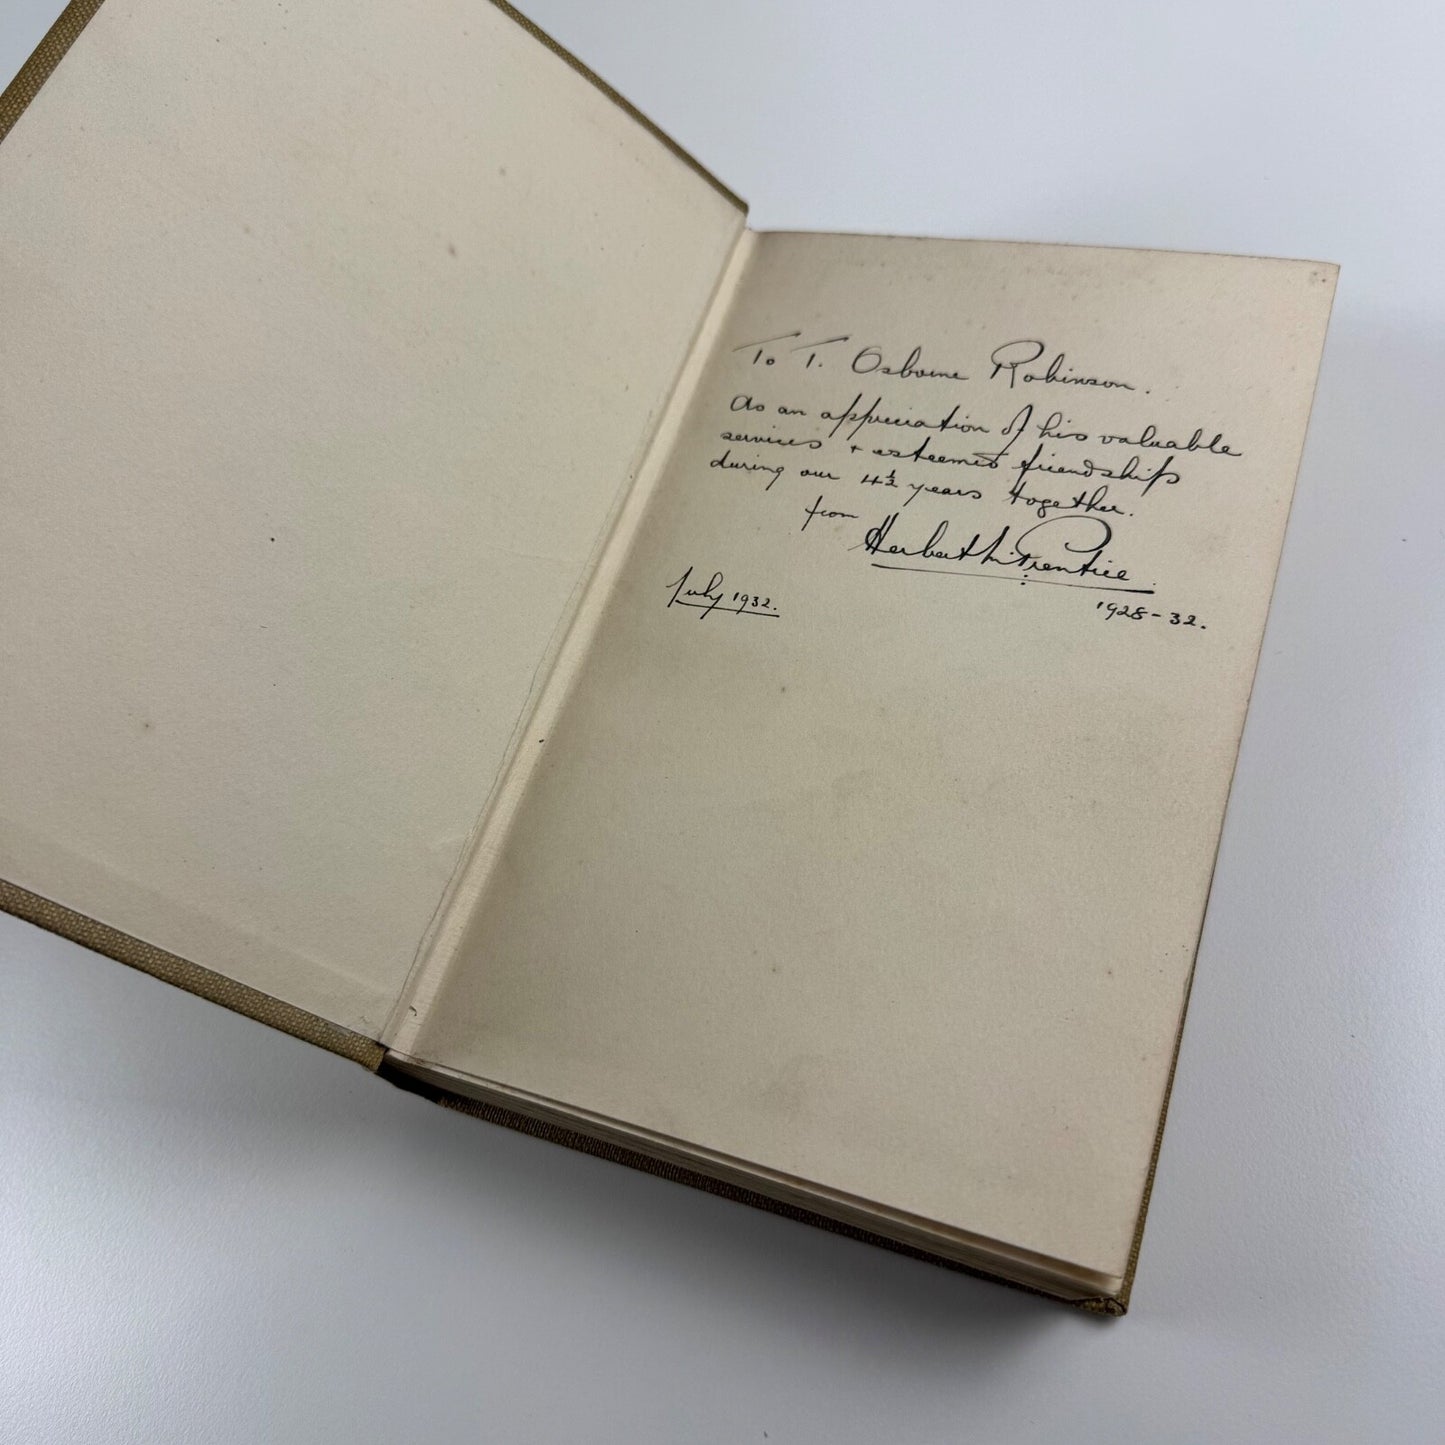 To T. Osborne Robinson.
As an appreciation of his valuable
services + esteemed friendship
during our 4½ years together.
from
Herbert M. Prentice.
July 1932.
1928-32.